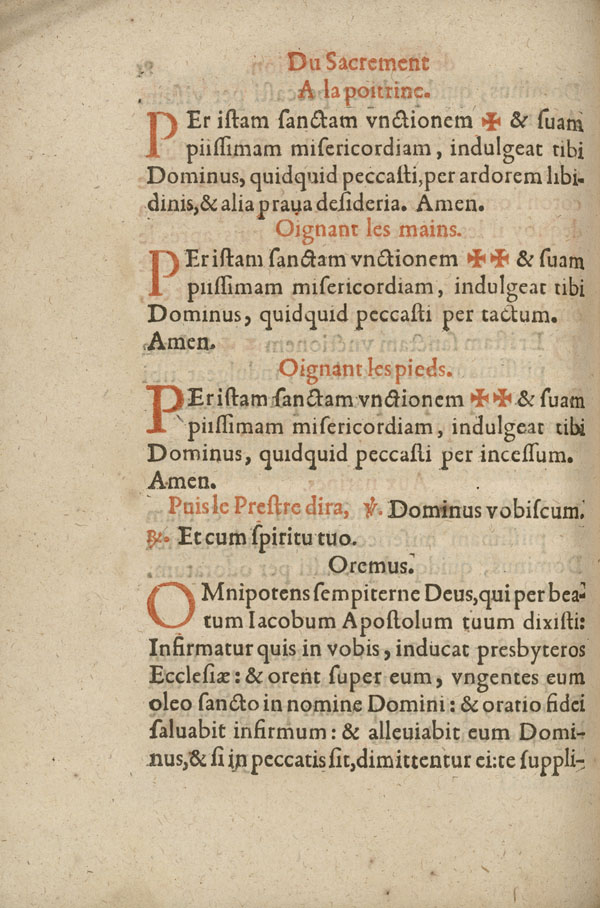 Du Sacrement
A la poitrine.
PEr istam sanctam vnctionem ✠ & suam
piissimam misericordiam, indulgeat tibi
Dominus, quidquid peccasti, per ardorem libi-
dinis, & alia praua desideria. Amen.
Oignant les mains.
PEr istam sanctam vnctionem ✠✠ & suam
piissimam misericordiam, indulgeat tibi
Dominus, quidquid peccasti per tactum.
Amen.
Oignant les pieds.
PEr istam sanctam vnctionem ✠✠ & suam
piissimam misericordiam, indulgeat tibi
Dominus, quidquid peccasti per incessum.
Amen.
Puis le Prestre dira, ℣. Dominus vobiscum.
℟. Et cum spiritu tuo.
Oremus.
OMnipotens sempiterne Deus, qui per bea-
tum Iacobum Apostolum tuum dixisti:
Infirmatur quis in vobis, inducat presbyteros
Ecclesiæ: & orent super eum, vngentes eum
oleo sancto in nomine Domini: & oratio fidei
saluabit infirmum: & alleuiabit eum Domi-
nus, & si in peccatis sit, dimittentur ei: te suppli-